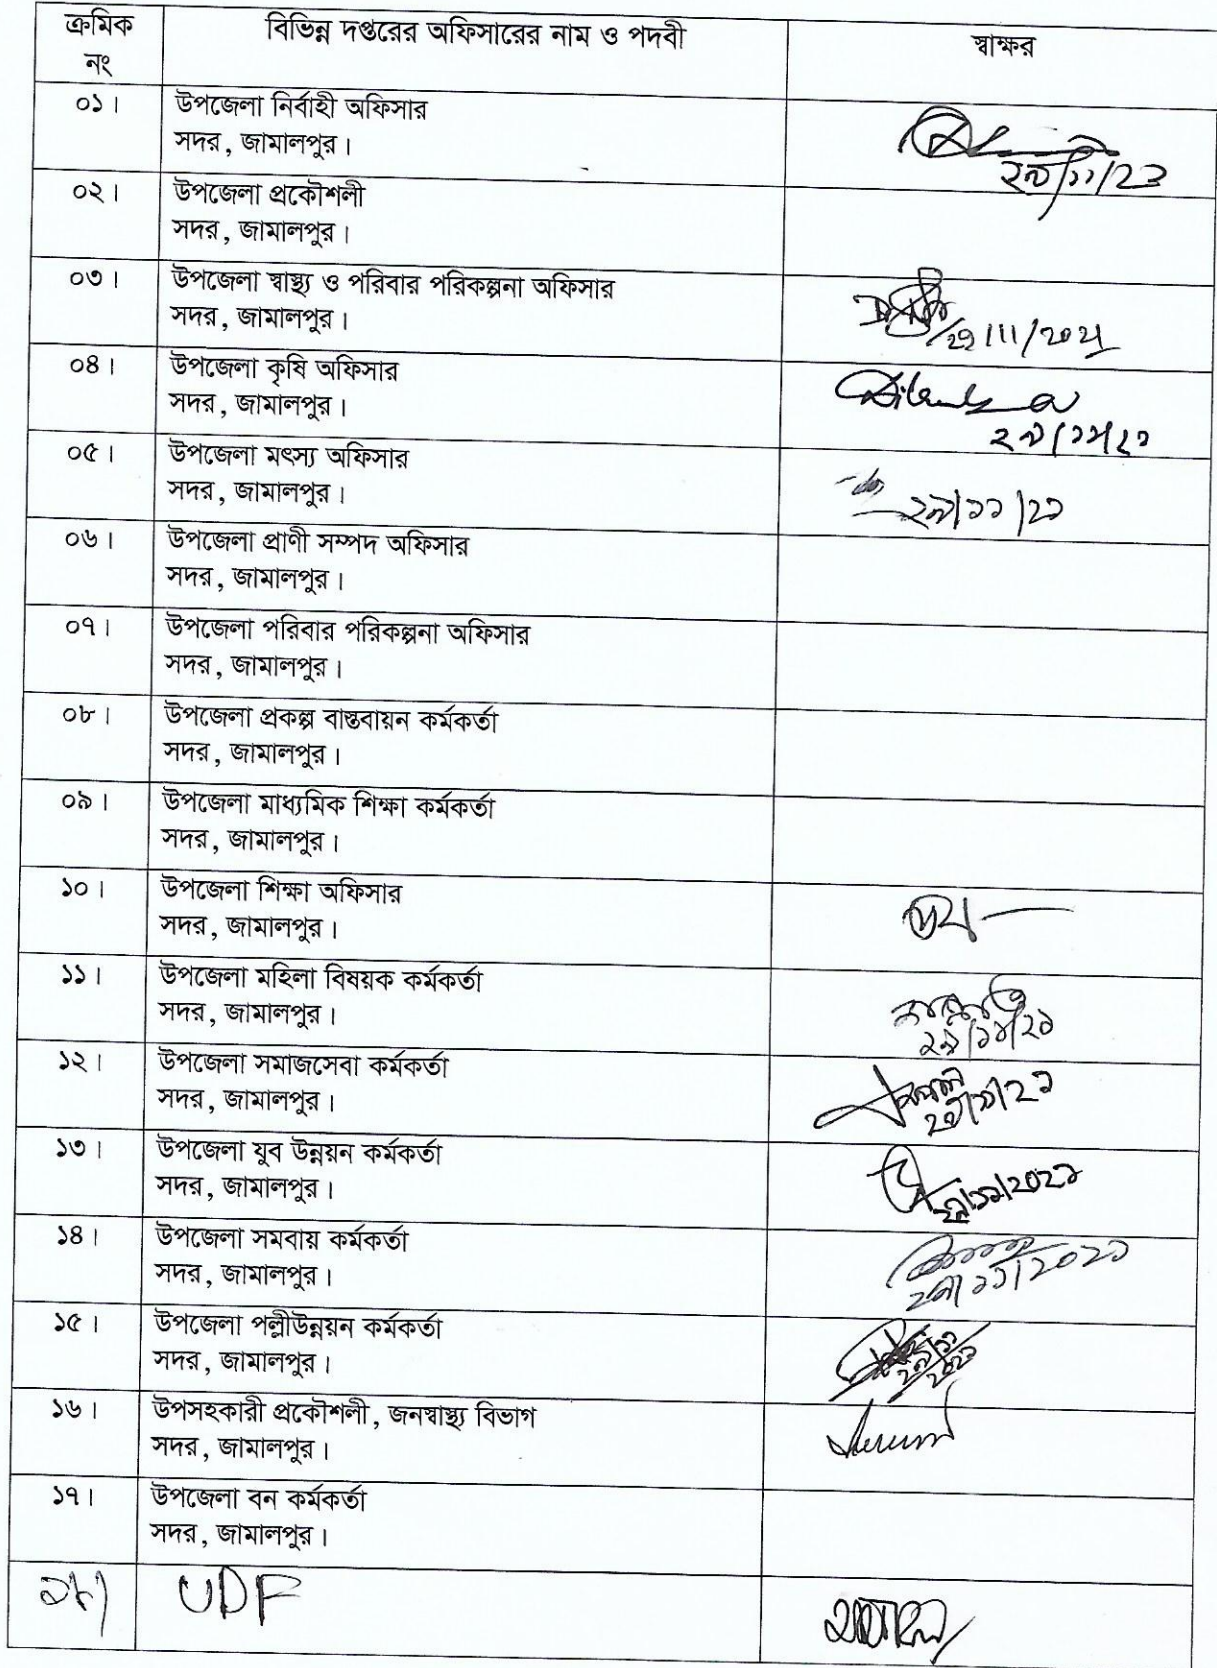 ক্রমিক নং বিভিন্ন দপ্তরের অফিসারের নাম ও পদবী স্বাক্ষর
০১। উপজেলা নির্বাহী অফিসার
সদর, জামালপুর।
০২। উপজেলা প্রকৌশলী
সদর, জামালপুর।
০৩। উপজেলা স্বাস্থ্য ও পরিবার পরিকল্পনা অফিসার
সদর, জামালপুর।
০৪। উপজেলা কৃষি অফিসার
সদর, জামালপুর।
০৫। উপজেলা মৎস্য অফিসার
সদর, জামালপুর। ২৯/১১/২১
০৬। উপজেলা প্রাণী সম্পদ অফিসার
সদর, জামালপুর।
০৭। উপজেলা পরিবার পরিকল্পনা অফিসার
সদর, জামালপুর।
০৮। উপজেলা প্রকল্প বাস্তবায়ন কর্মকর্তা
সদর, জামালপুর।
০৯। উপজেলা মাধ্যমিক শিক্ষা কর্মকর্তা
সদর, জামালপুর।
১০। উপজেলা শিক্ষা অফিসার
সদর, জামালপুর।
১১। উপজেলা মহিলা বিষয়ক কর্মকর্তা
সদর, জামালপুর। ২৯/১১/২১
১২। উপজেলা সমাজসেবা কর্মকর্তা
সদর, জামালপুর।
১৩। উপজেলা যুব উন্নয়ন কর্মকর্তা
সদর, জামালপুর।
১৪। উপজেলা সমবায় কর্মকর্তা
সদর, জামালপুর। ২৯/১১/২০২১
১৫। উপজেলা পল্লীউন্নয়ন কর্মকর্তা
সদর, জামালপুর।
১৬। উপসহকারী প্রকৌশলী, জনস্বাস্থ্য বিভাগ
সদর, জামালপুর।
১৭। উপজেলা বন কর্মকর্তা
সদর, জামালপুর।
১৮। UDF